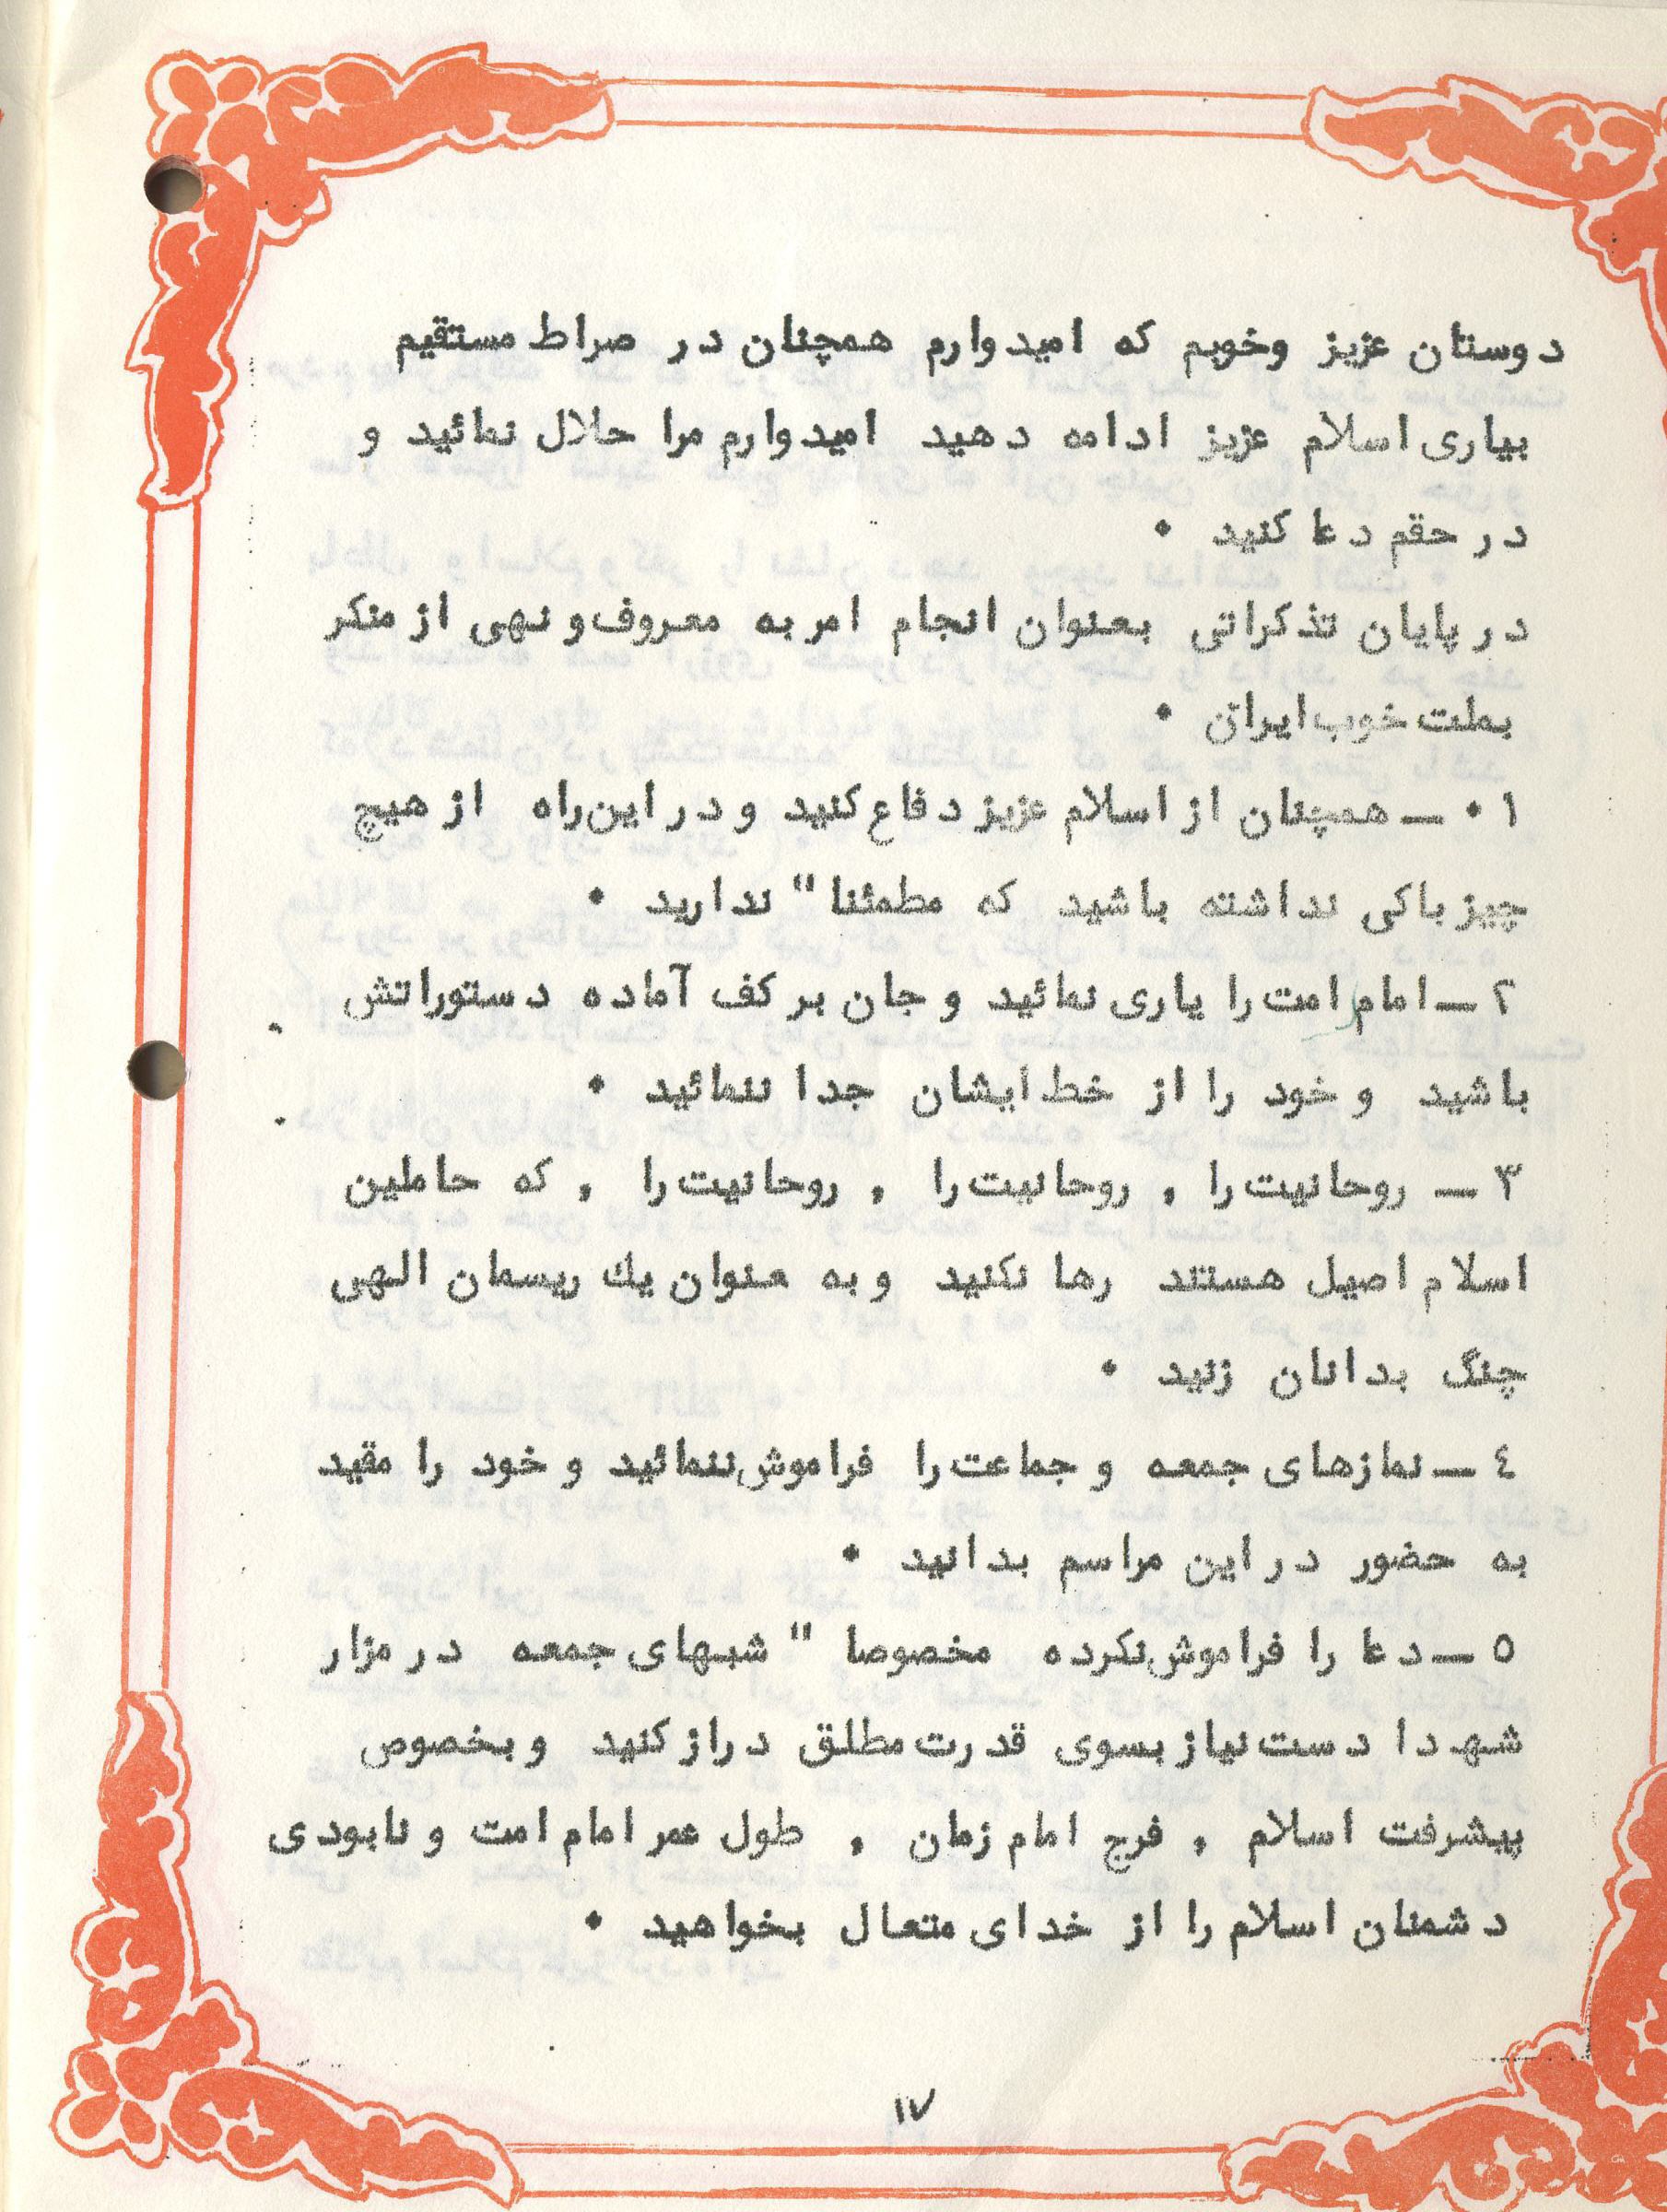 دوستان عزیز وخوبم که امیدوارم همچنان در صراط مستقیم
بیاری اسلام عزیز ادامه دهید امیدوارم مرا حلال نمائید و
در حقم دعا کنید .
در پایان تذکراتی بعنوان انجام امر به معروف و نهی از منکر
بملت خوب ایران .
۱۰ ـ همچنان از اسلام عزیز دفاع کنید و در این راه از هیچ
چیز باکی نداشته باشید که مطمئنا" ندارید .
۲ ـ امام امت را یاری نمائید و جان بر کف آماده دستوراتش
باشید و خود را از خط ایشان جدا ننمائید .
۳ ـ روحانیت را , روحانیت را , روحانیت را , که حاملین
اسلام اصیل هستند رها نکنید و به عنوان یك ریسمان الهی
چنگ بدانان زنید .
٤ ـ نمازهای جمعه و جماعت را فراموش ننمائید و خود را مقید
به حضور در این مراسم بدانید .
٥ ـ دعا را فراموش نکرده مخصوصا " شبهای جمعه در مزار
شهدا دست نیاز بسوی قدرت مطلق دراز کنید و بخصوص
پیشرفت اسلام , فرج امام زمان , طول عمر امام امت و نابودی
دشمنان اسلام را از خدای متعال بخواهید .
۱۷